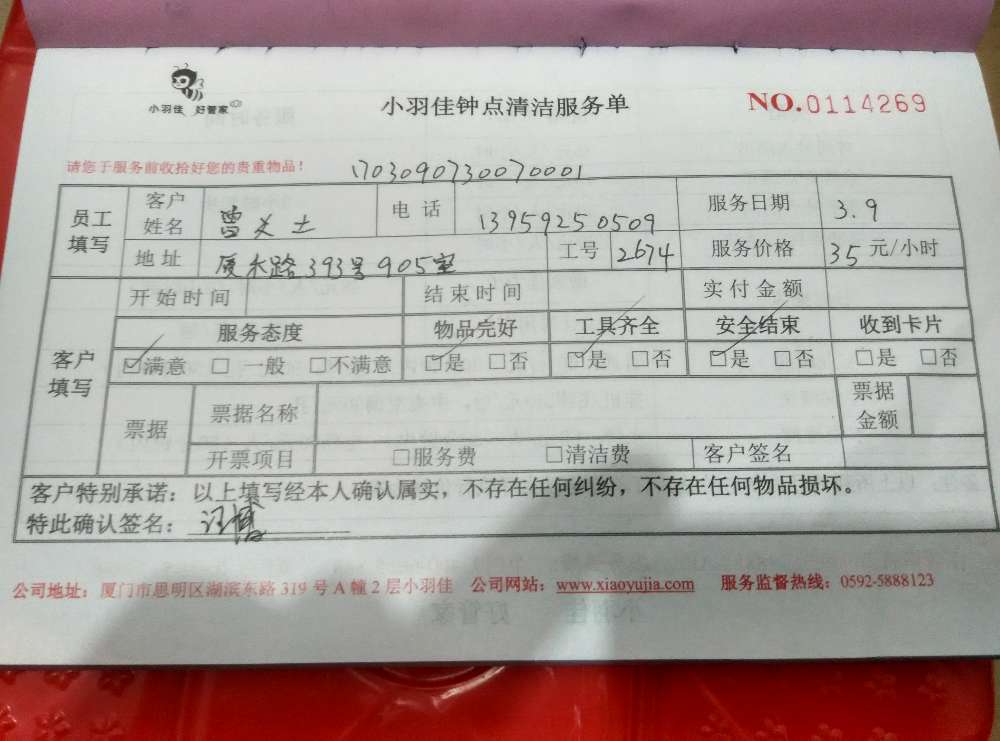 小羽佳 好管家
小羽佳钟点清洁服务单
NO.0114269
请您于服务前收拾好您的贵重物品！
1703090730070001
员工填写 客户姓名 电话 13959250509 服务日期 3.9
地址 厦禾路393号905室 工号 2674 服务价格 35元/小时
客户填写 开始时间 结束时间 实付金额
服务态度 物品完好 工具齐全 安全结束 收到卡片
☑满意 □一般 □不满意 ☑是 □否 ☑是 □否 ☑是 □否 □是 □否
票据 票据名称 票据金额
开票项目 □服务费 □清洁费 客户签名
客户特别承诺：以上填写经本人确认属实，不存在任何纠纷，不存在任何物品损坏。
特此确认签名：
公司地址：厦门市思明区湖滨东路319号A幢2层小羽佳 公司网站：www.xiaoyujia.com 服务监督热线：0592-5888123